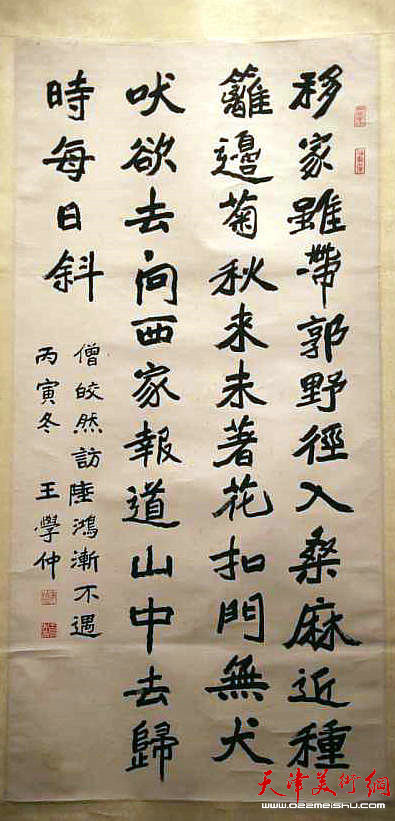 移家雖帶郭野徑入桑麻近種
籬邊菊秋來未著花扣門無犬
吠欲去问西家報道山中去歸
時每日斜
僧皎然訪陸鴻漸不遇
丙寅冬 王學仲
天津美術網
www.022meishu.com